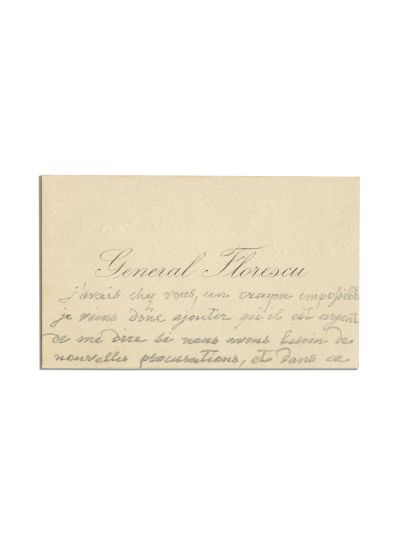 General Florescu
j'avais chez vous, un crayon impossible
je viens donc ajouter qu'il est urgent
de me dire si nous avons besoin de
nouvelles procurations, et dans ce